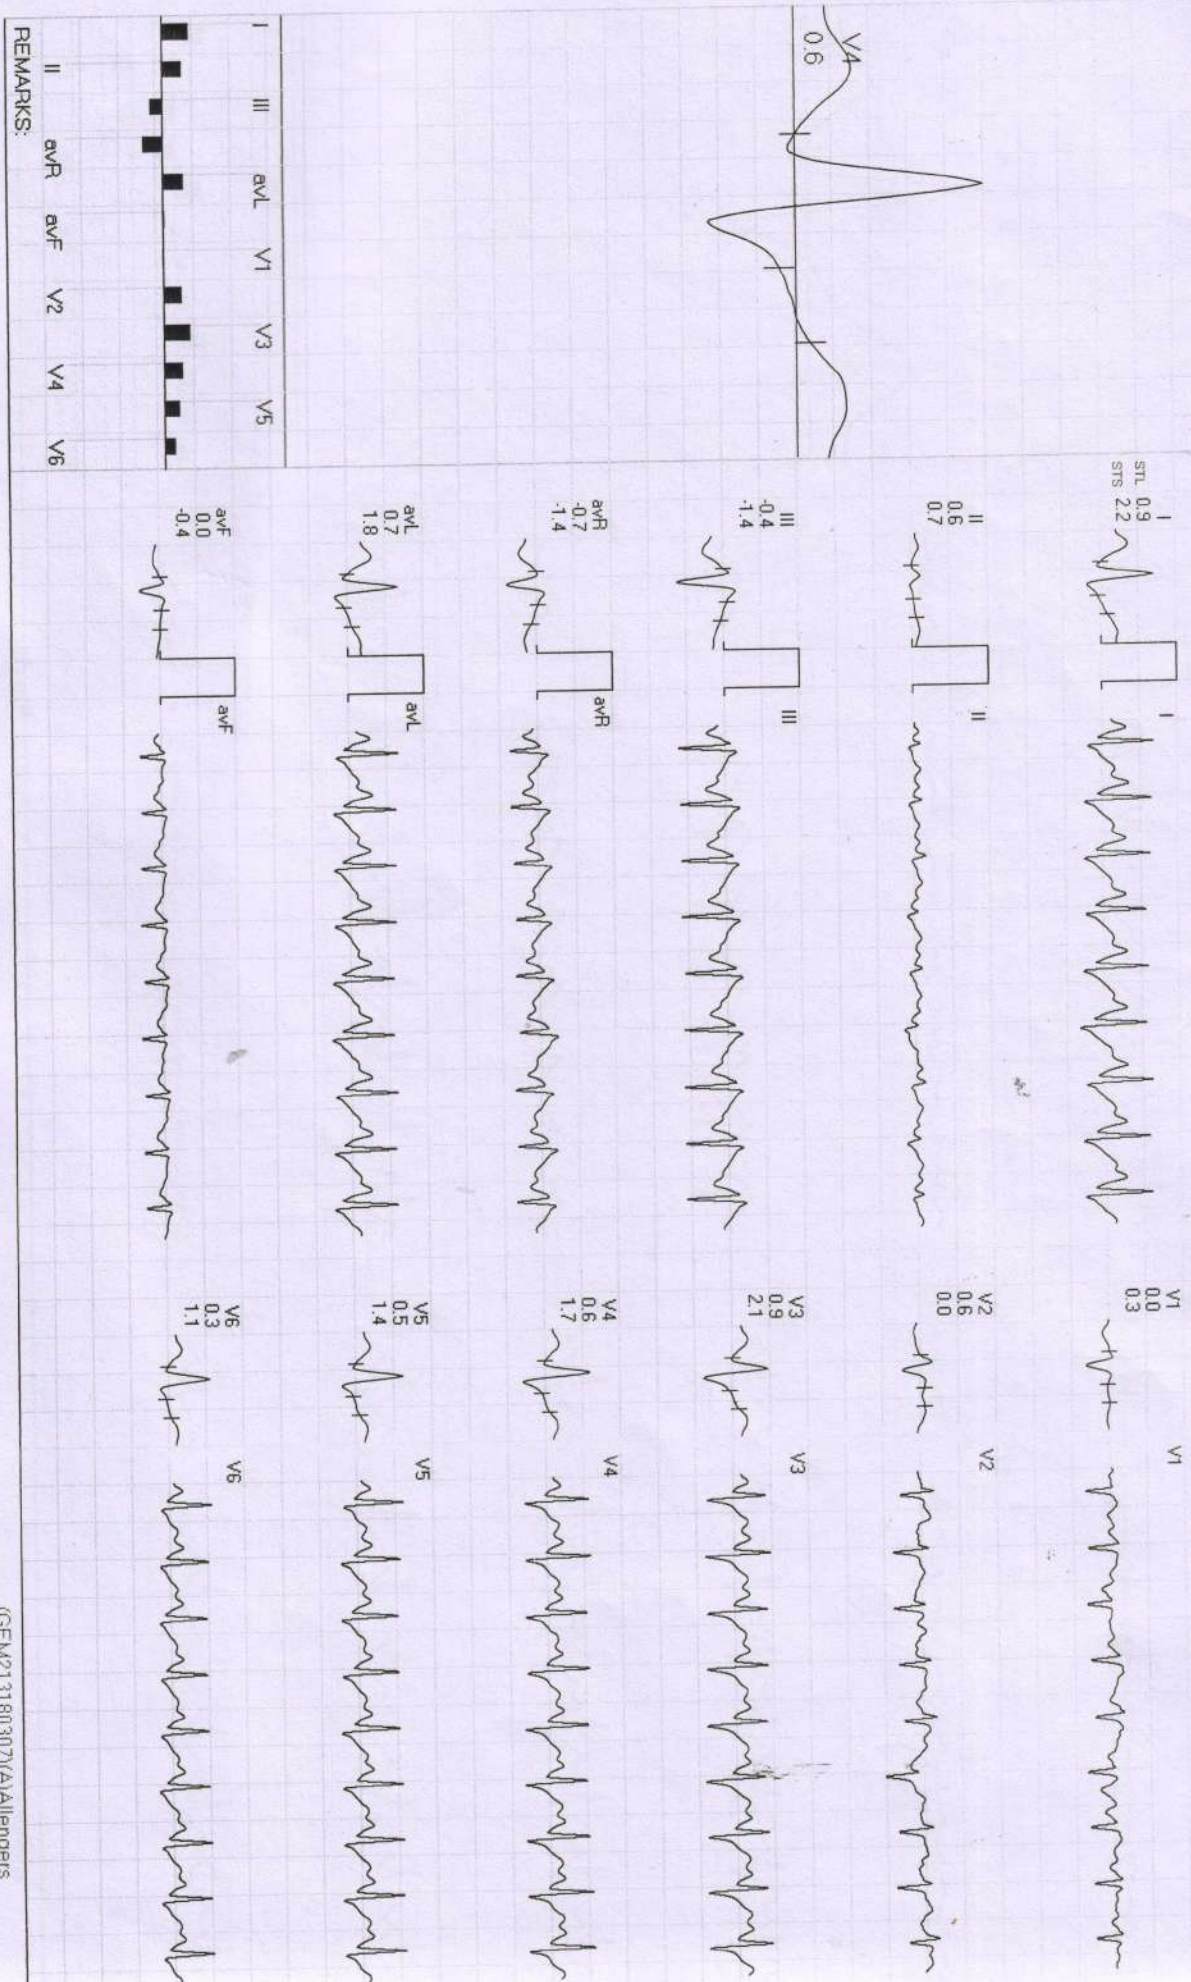 V4
0.6
I
III
avL
V1
V3
V5
II
avR
avF
V2
V4
V6
REMARKS:
I
STL 0.9
STS 2.2
I
II
0.6
0.7
II
III
-0.4
-1.4
III
avR
-0.7
-1.4
avR
avL
0.7
1.8
avL
avF
0.0
-0.4
avF
V1
0.0
0.3
V1
V2
0.6
0.0
V2
V3
0.9
2.1
V3
V4
0.6
1.7
V4
V5
0.5
1.4
V5
V6
0.3
1.1
V6
(GEM213180307)(A)Allengers